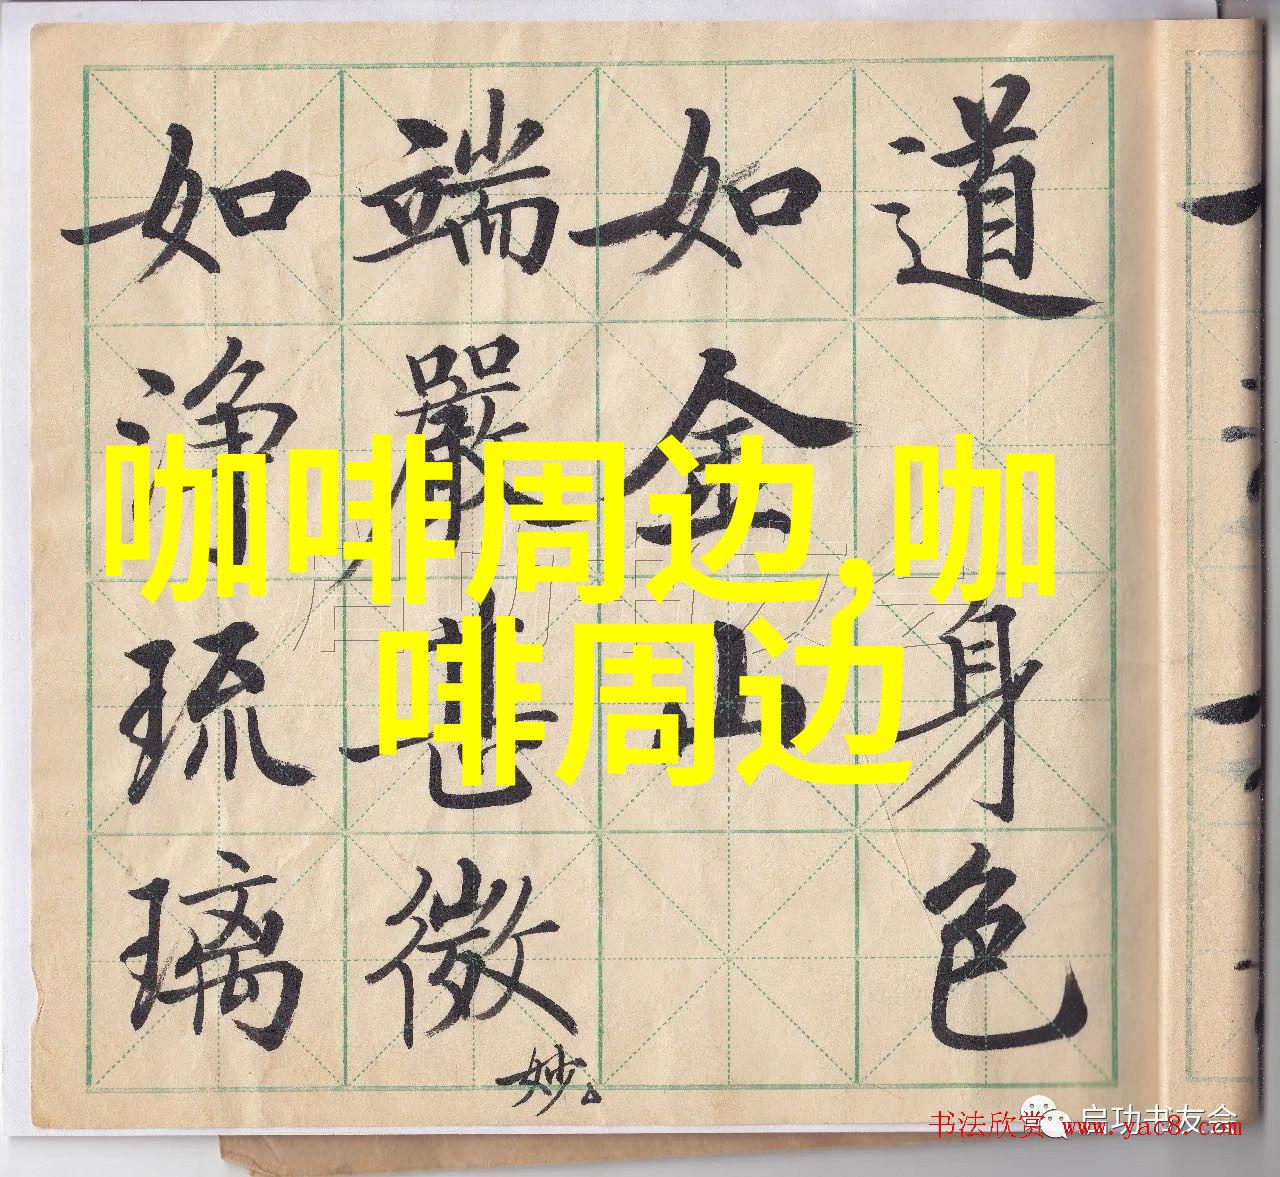 道 身色
如金山
端嚴甚微妙
如淨琉璃
咖啡周边,咖
啡周边
启功书友会
书法欣赏 www.yac8.com